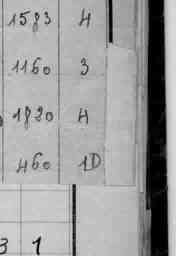 1583 4
1160 3
1820 4
460 1D
3 1